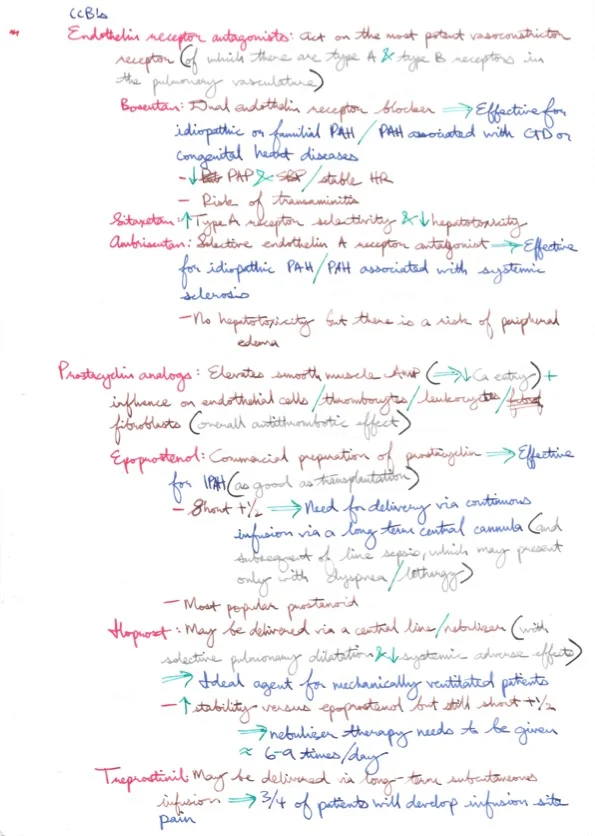 CCBs
Endothelin receptor antagonists: act on the most potent vasoconstrictor
receptor (of which there are type A & type B receptors in
the pulmonary vasculature)
Bosentan: Dual endothelin receptor blocker ⇒ Effective for
idiopathic or familial PAH / PAH associated with CTD or
congenital heart diseases
- ↓ PAP & SBP / stable HR
- Risk of transaminitis
Sitaxetan: ↑ Type A receptor selectivity & ↓ hepatotoxicity
Ambrisentan: Selective endothelin A receptor antagonist → Effective
for idiopathic PAH / PAH associated with systemic
sclerosis
- No hepatotoxicity but there is a risk of peripheral
edema
Prostacyclin analogs: Elevates smooth muscle (⇒ ↓ Ca entry) +
influence on endothelial cells / thrombocytes / leukocytes /
fibroblasts (overall antithrombotic effect)
Epoprostenol: Commercial preparation of prostacyclin ⇒ Effective
for IPAH (as good as transplantation)
- Short t½ ⇒ Need for delivery via continuous
infusion via a long term central cannula (and
subsequent of line sepsis, which may present
only with dyspnea / lethargy)
- Most popular prostenoid
Iloprost: May be delivered via a central line / nebulizer (with
selective pulmonary dilatation & ↓ systemic adverse effects)
⇒ Ideal agent for mechanically ventilated patients
- ↑ stability versus epoprostenol but still short t½
⇒ nebulizer therapy needs to be given
≈ 6-9 times/day
Treprostinil: May be delivered via long-term subcutaneous
infusion ⇒ 3/4 of patients will develop infusion site
pain